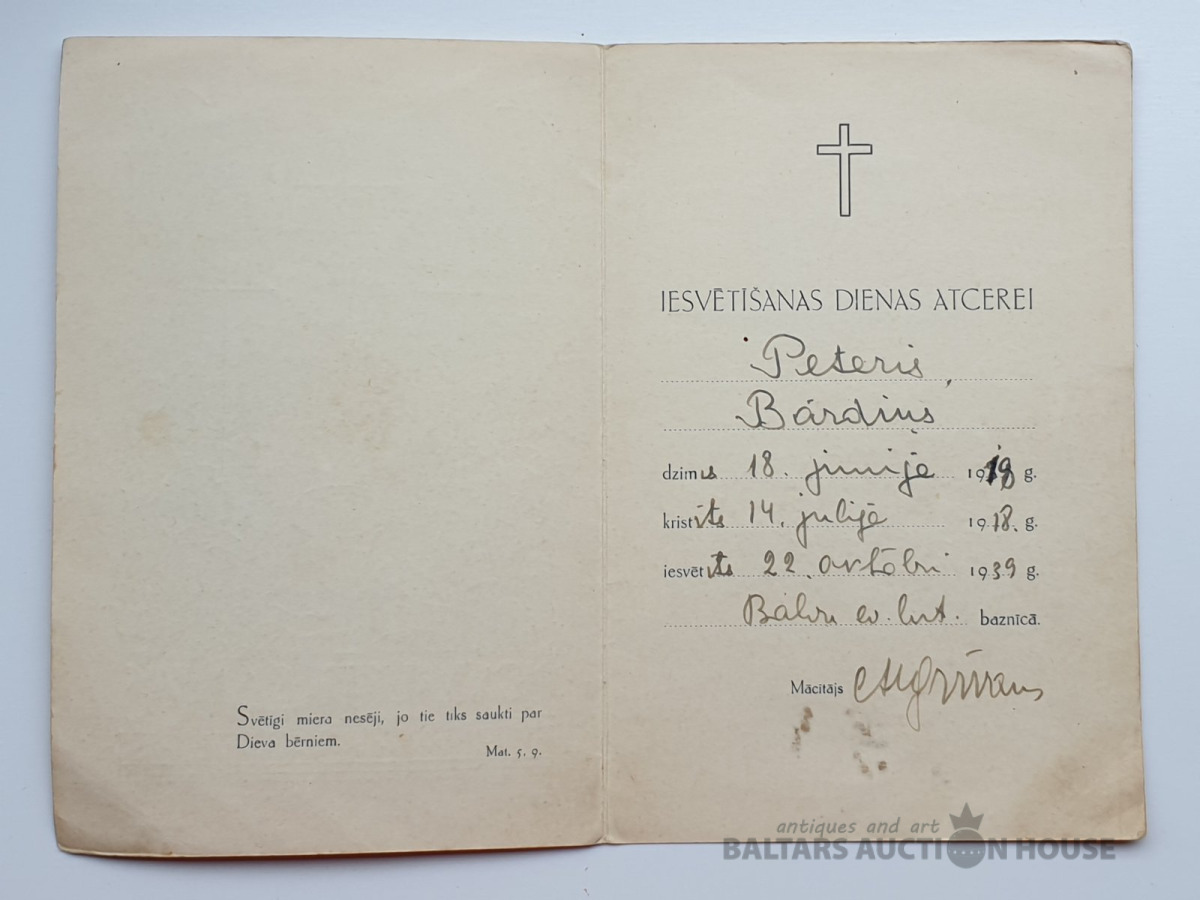 Svētīgi miera nesēji, jo tie tiks saukti par
Dieva bērniem.
Mat. 5. 9.
IESVĒTĪŠANAS DIENAS ATCEREI
Peteris
Bārdiņs
dzimus 18. jūnijā 1918 g.
kristīts 14. jūlijā 1918. g.
iesvētīts 22. oktōbrī 1939 g.
Balvu ev. lut. baznīcā.
Mācītājs
antiques and art
BALTARS AUCTION HOUSE